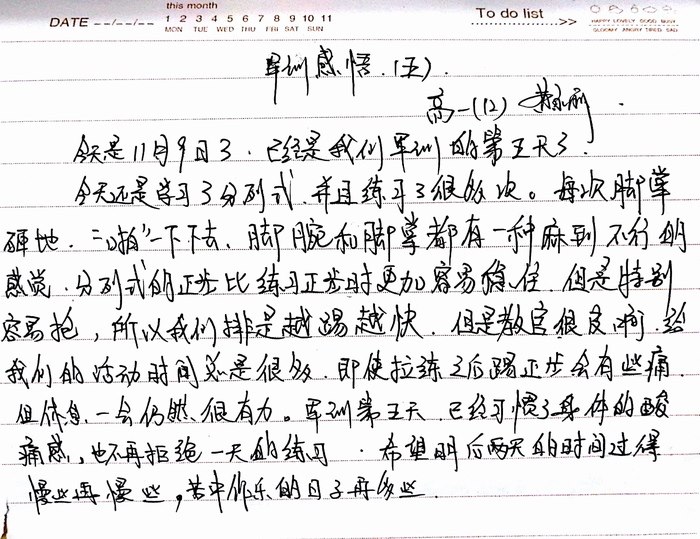 this month
DATE --/--/-- 1 2 3 4 5 6 7 8 9 10 11
MON TUE WED THU FRI SAT SUN
To do list
HAPPY LOVELY GOOD BUSY
GLOOMY ANGRY TIRED SAD
军训感悟.(五).
高一(12)
今天是11月9日了.已经是我们军训的第五天了.
今天还是学习了分列式.并且练习了很多次。每次脚掌
砸地."啪"一下下去、脚腕和脚掌都有一种麻到不行的
感觉.分列式的正步比练习正步时更加容易稳住.但是特别
容易抢,所以我们排是越踢越快.但是教官很友啊.给
我们的活动时间总是很多.即使拉练之后踢正步会有些痛.
但休息.一会仍然很有力。军训第五天.已经习惯了身体的酸
痛感,也不再拒绝一天的练习.希望明后两天的时间过得
慢些再慢些,苦中作乐的日子再多些.